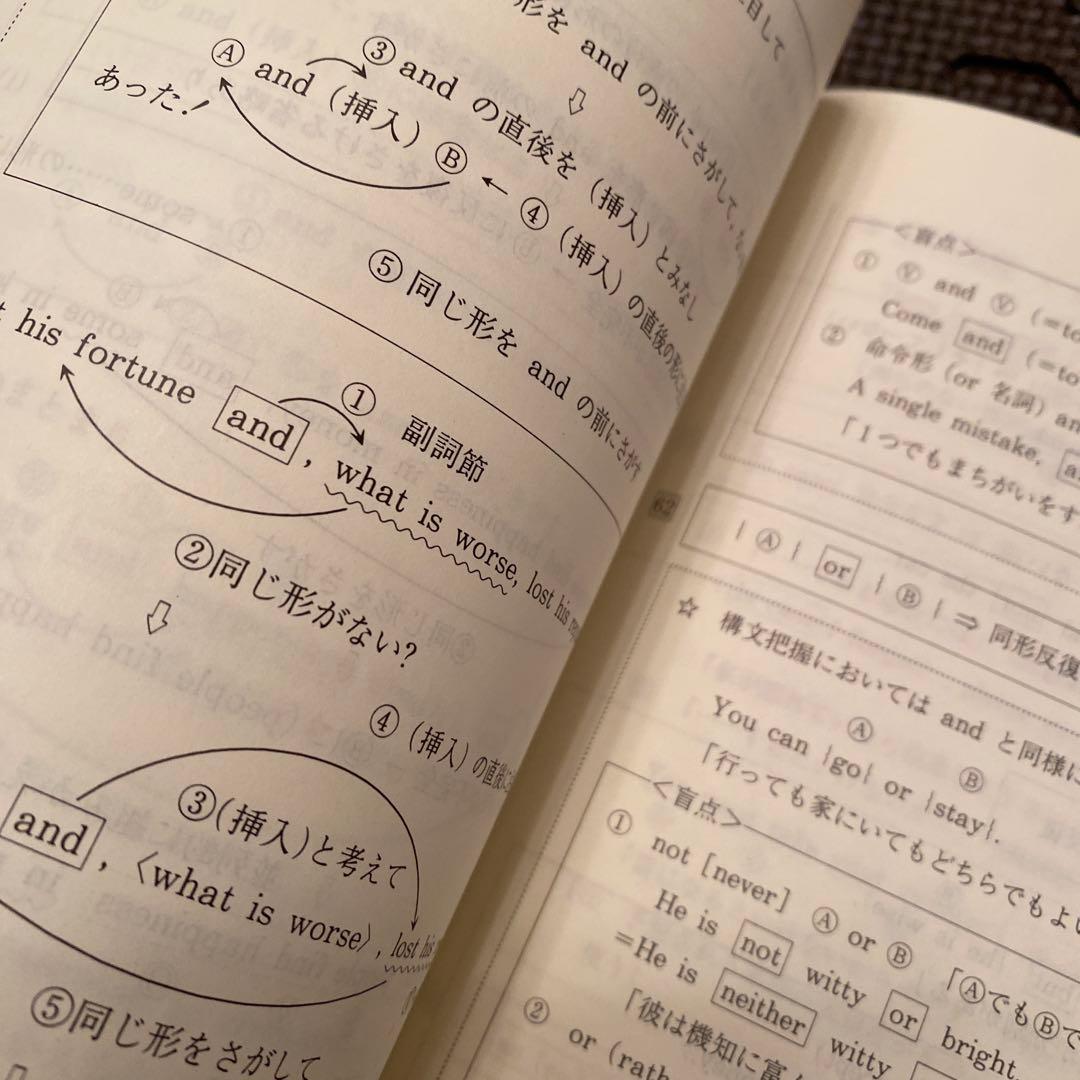 形を and の前にさがして、
Ⓐ and (挿入) Ⓑ ← ④ (挿入) の直後の形に
③ and の直後を (挿入) とみなし
あった!
⑤ 同じ形を and の前にさがす
his fortune and, what is worse, lost his
① 副詞節
②同じ形がない?
④ (挿入) の直後に
③(挿入)と考えて
and, 〈what is worse〉, lost his
⑤同じ形をさがして
<盲点>
① Ⓥ and Ⓥ (=to
Come and (=to
② 命令形 (or 名詞) an
A single mistake,
「1つでもまちがいをす
62
{Ⓐ} or {Ⓑ} ⇒ 同形反復
☆ 構文把握においては and と同様に
Ⓐ Ⓑ
You can {go} or {stay}.
「行っても家にいてもどちらでもよい
<盲点>
① not [never] Ⓐ or Ⓑ 「ⒶでもⒷで
He is not witty or bright.
=He is neither witty
「彼は機知に富
② or (rath